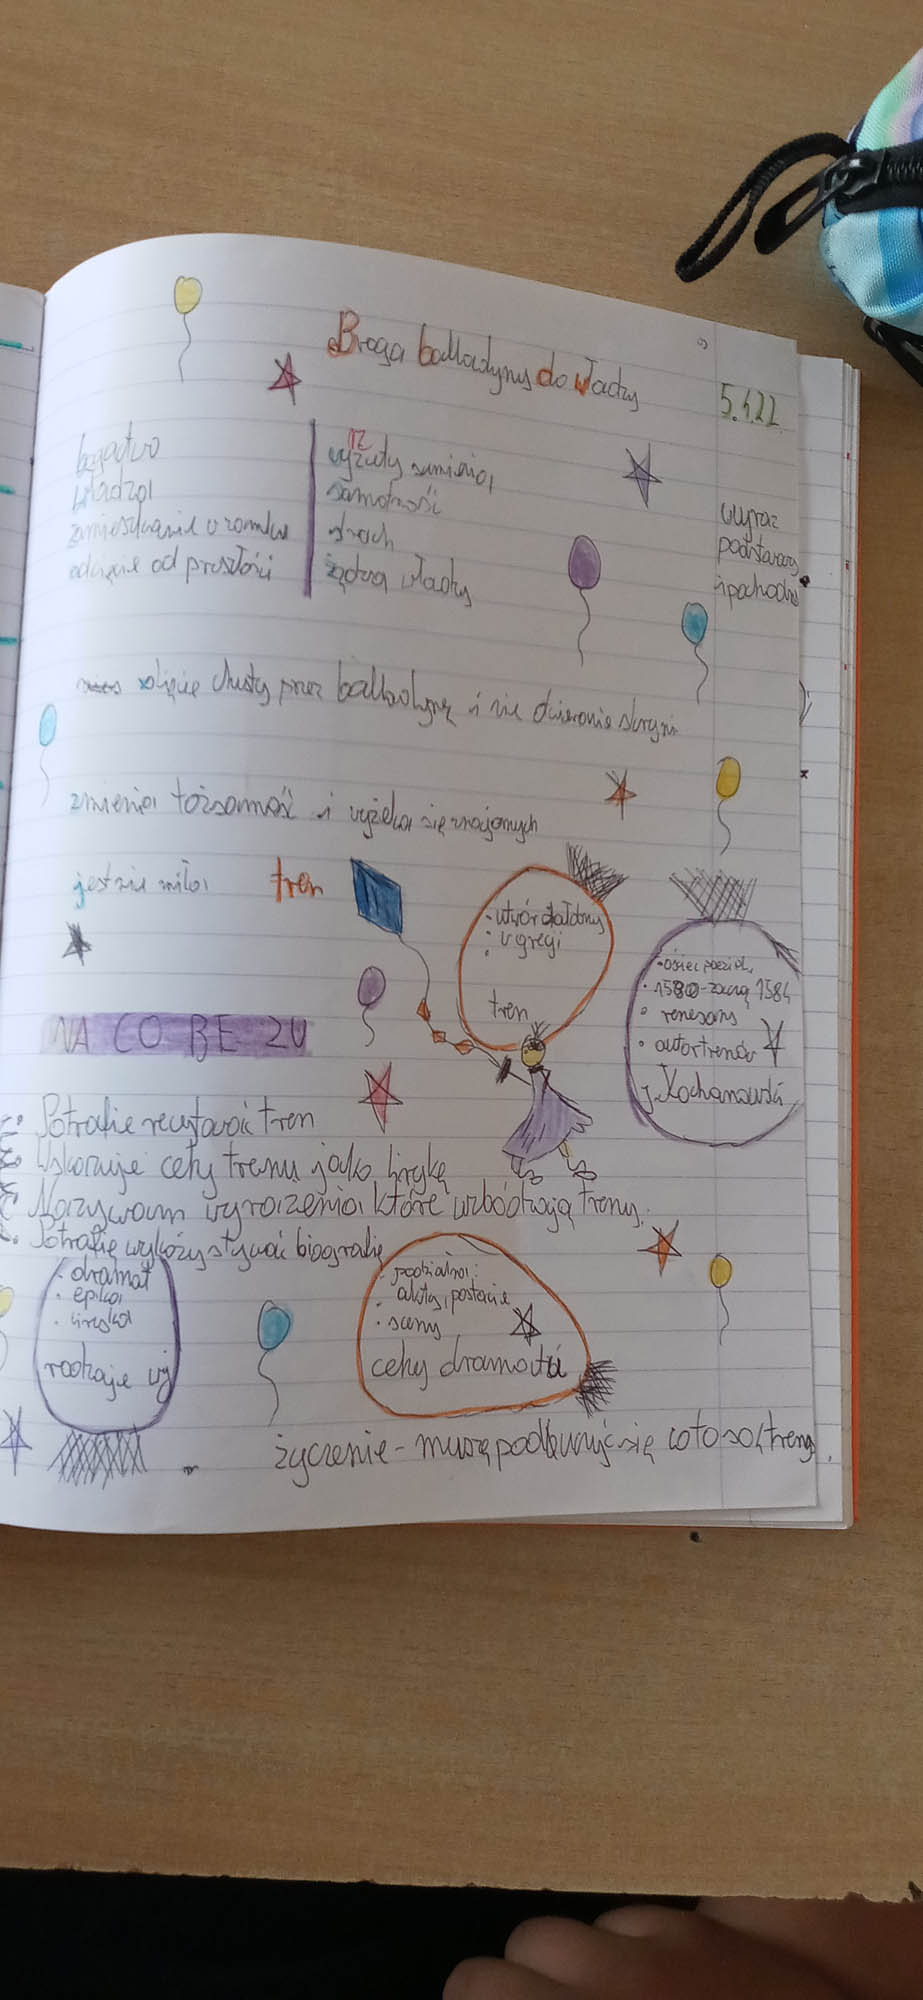 Droga balladyny do władzy
5.1.22.
bogactwo
władza
zamieszkanie w zamku
odcięcie od przeszłości
wyrzuty sumienia
samotność
strach
żądza władzy
wyraz
podstawowy
i pochodny
zdjęcie chusty przez balladynę i nie otwieranie skrzyni
zmienia tożsamość i wyżeka się znajomych
jest nie miła
tren
utwór żałobny
w grecji
tren
ojciec poezji
1530-zm 1584
renesans
autor trenów
J. Kochanowski
NA CO BE ZU
Potrafię recytować tren
Wskazuje cechy trenu jako lirykę
Nazywam wyrażenia, które wzbogacają treny.
Potrafię wykożystywać biografię
dramat
epika
liryka
rodzaje
podział na:
akty, postacie
sceny
cechy dramatu
życzenie - muszę podłuczyć się co to są treny.